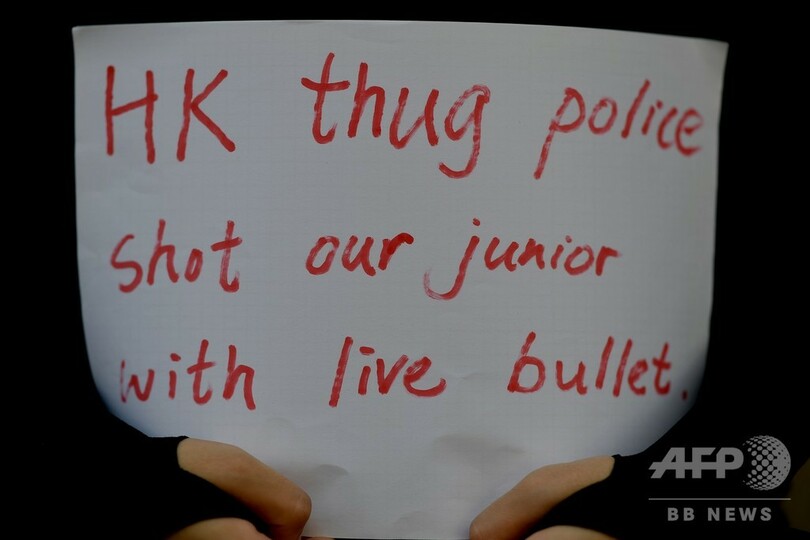 HK thug police
shot our junior
with live bullet.
AFP
BB NEWS